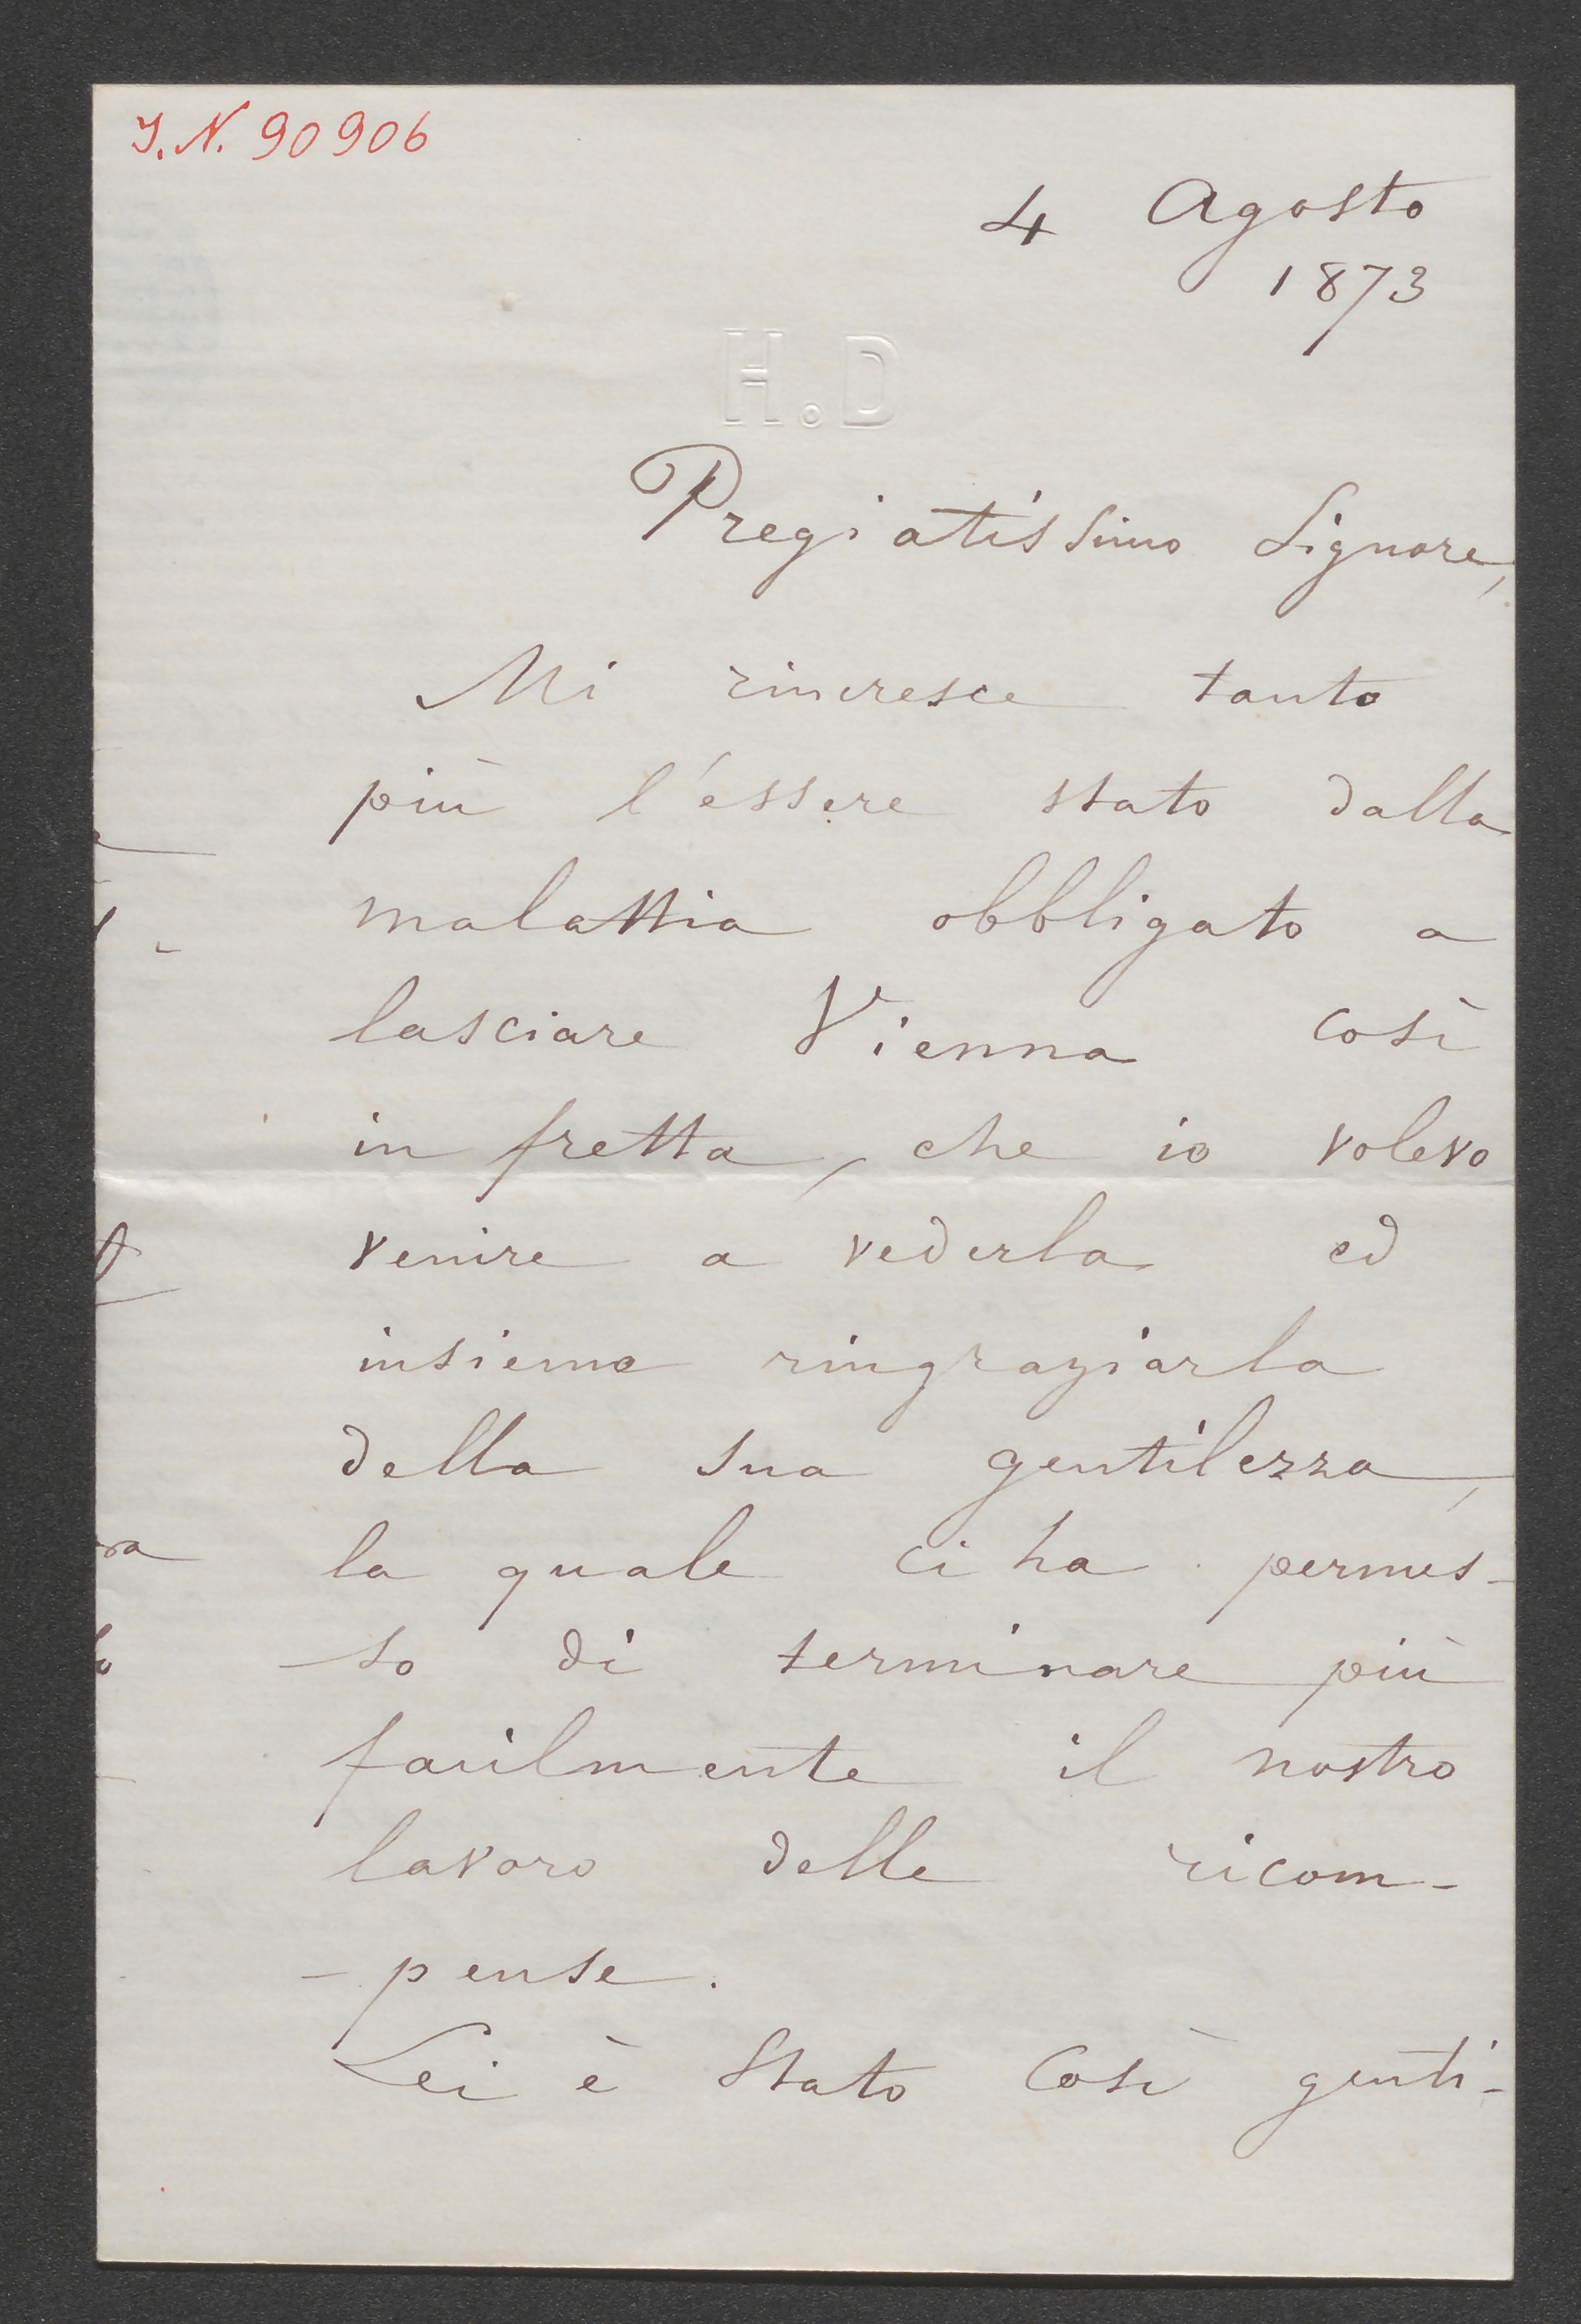 J. N. 90906
4 Agosto
1873
H.D
Pregiatissimo Signore,
Mi rincresce tanto
più l'essere stato dalla
malattia obbligato a
lasciare Vienna così
in fretta, che io volevo
venire a vederla ed
insieme ringraziarla
della sua gentilezza,
la quale ci ha permes-
-so di terminare più
facilmente il nostro
lavoro delle ricom-
-pense.
Lei è stato così genti-